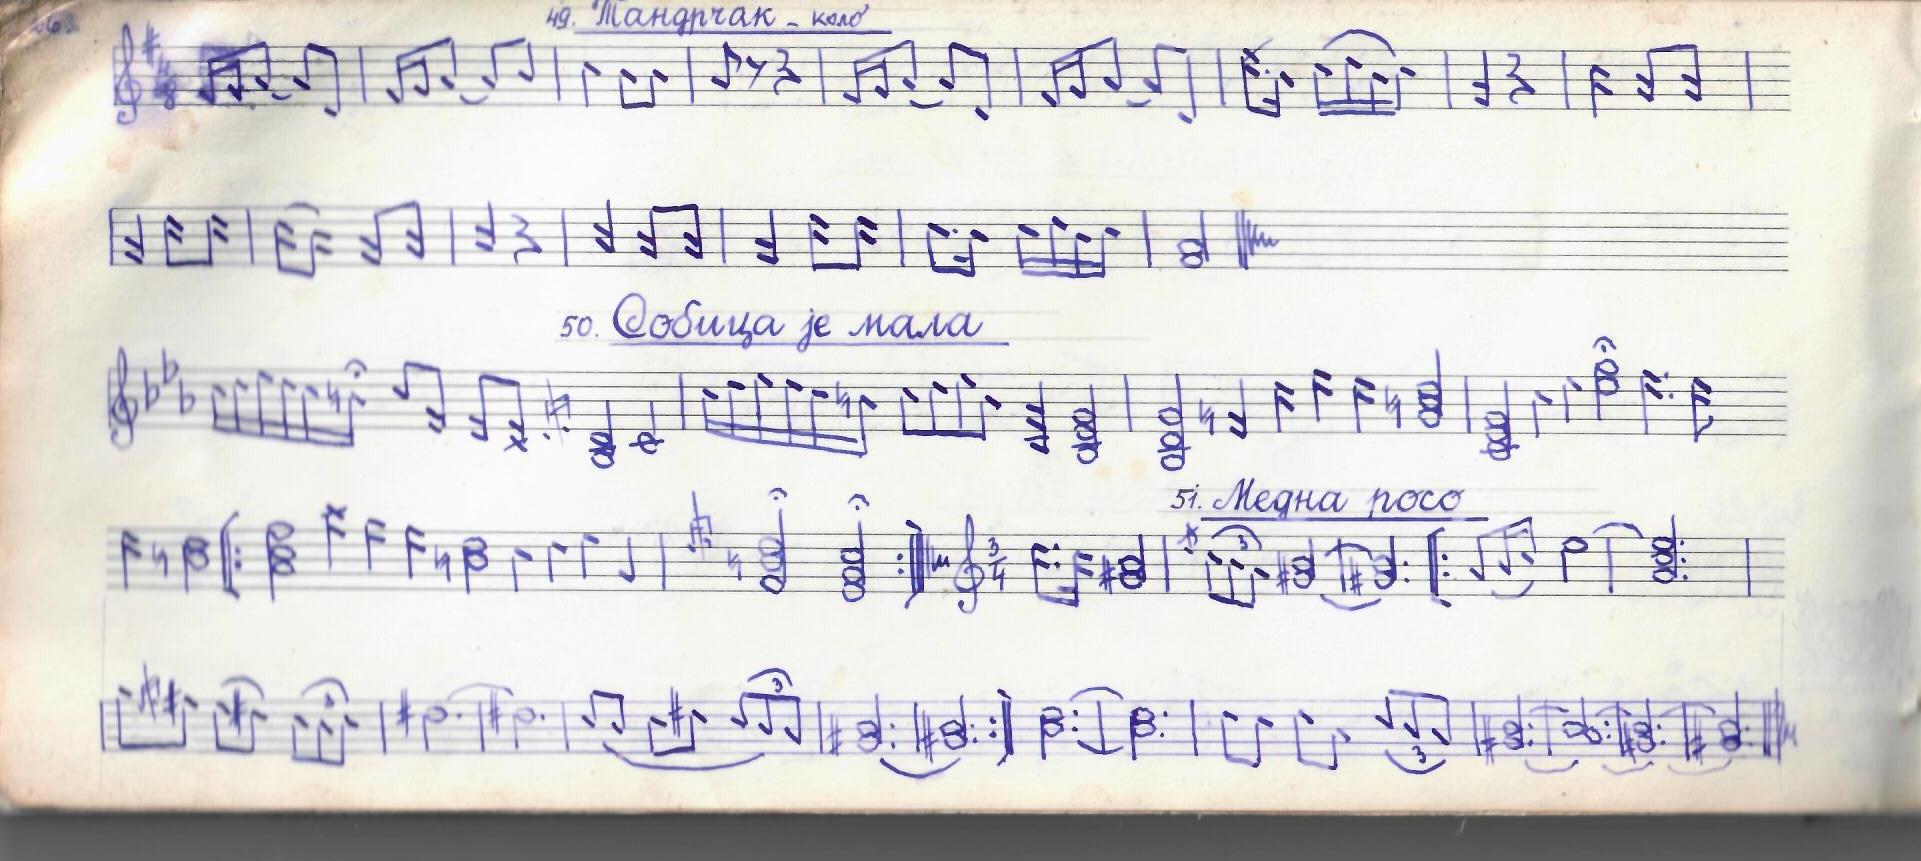 49. Тандрчак - коло
50. Собица је мала
51. Медна росо
3
4
3
3
3